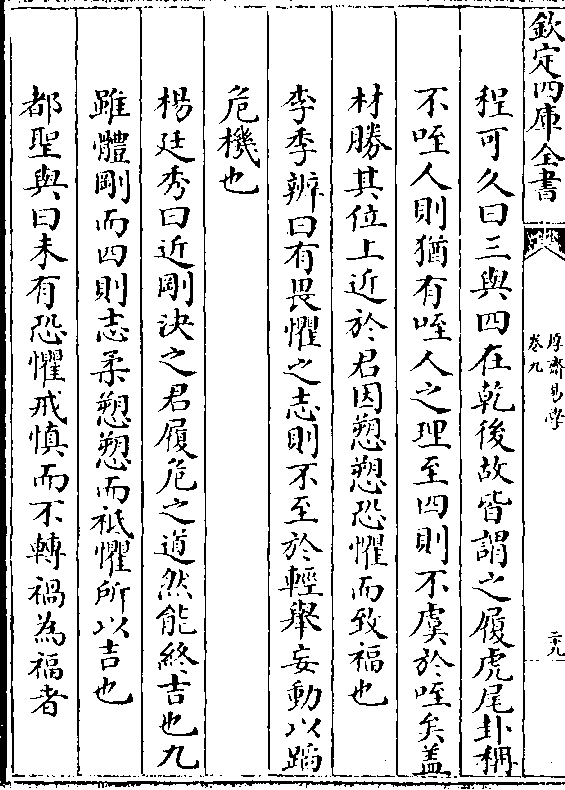 欽定四庫全書
厚齋易學
卷九
二十九
程可久曰三與四在乾後故皆謂之履虎尾卦稱
不咥人則猶有咥人之理至四則不虞於咥矣蓋
材勝其位上近於君因愬愬恐懼而致福也
李季辨曰有畏懼之志則不至於輕舉妄動以蹈
危機也
楊廷秀曰近剛決之君履危之道然能終吉也九
雖體剛而四則志柔愬愬而祗懼所以吉也
都聖與曰未有恐懼戒慎而不轉禍為福者